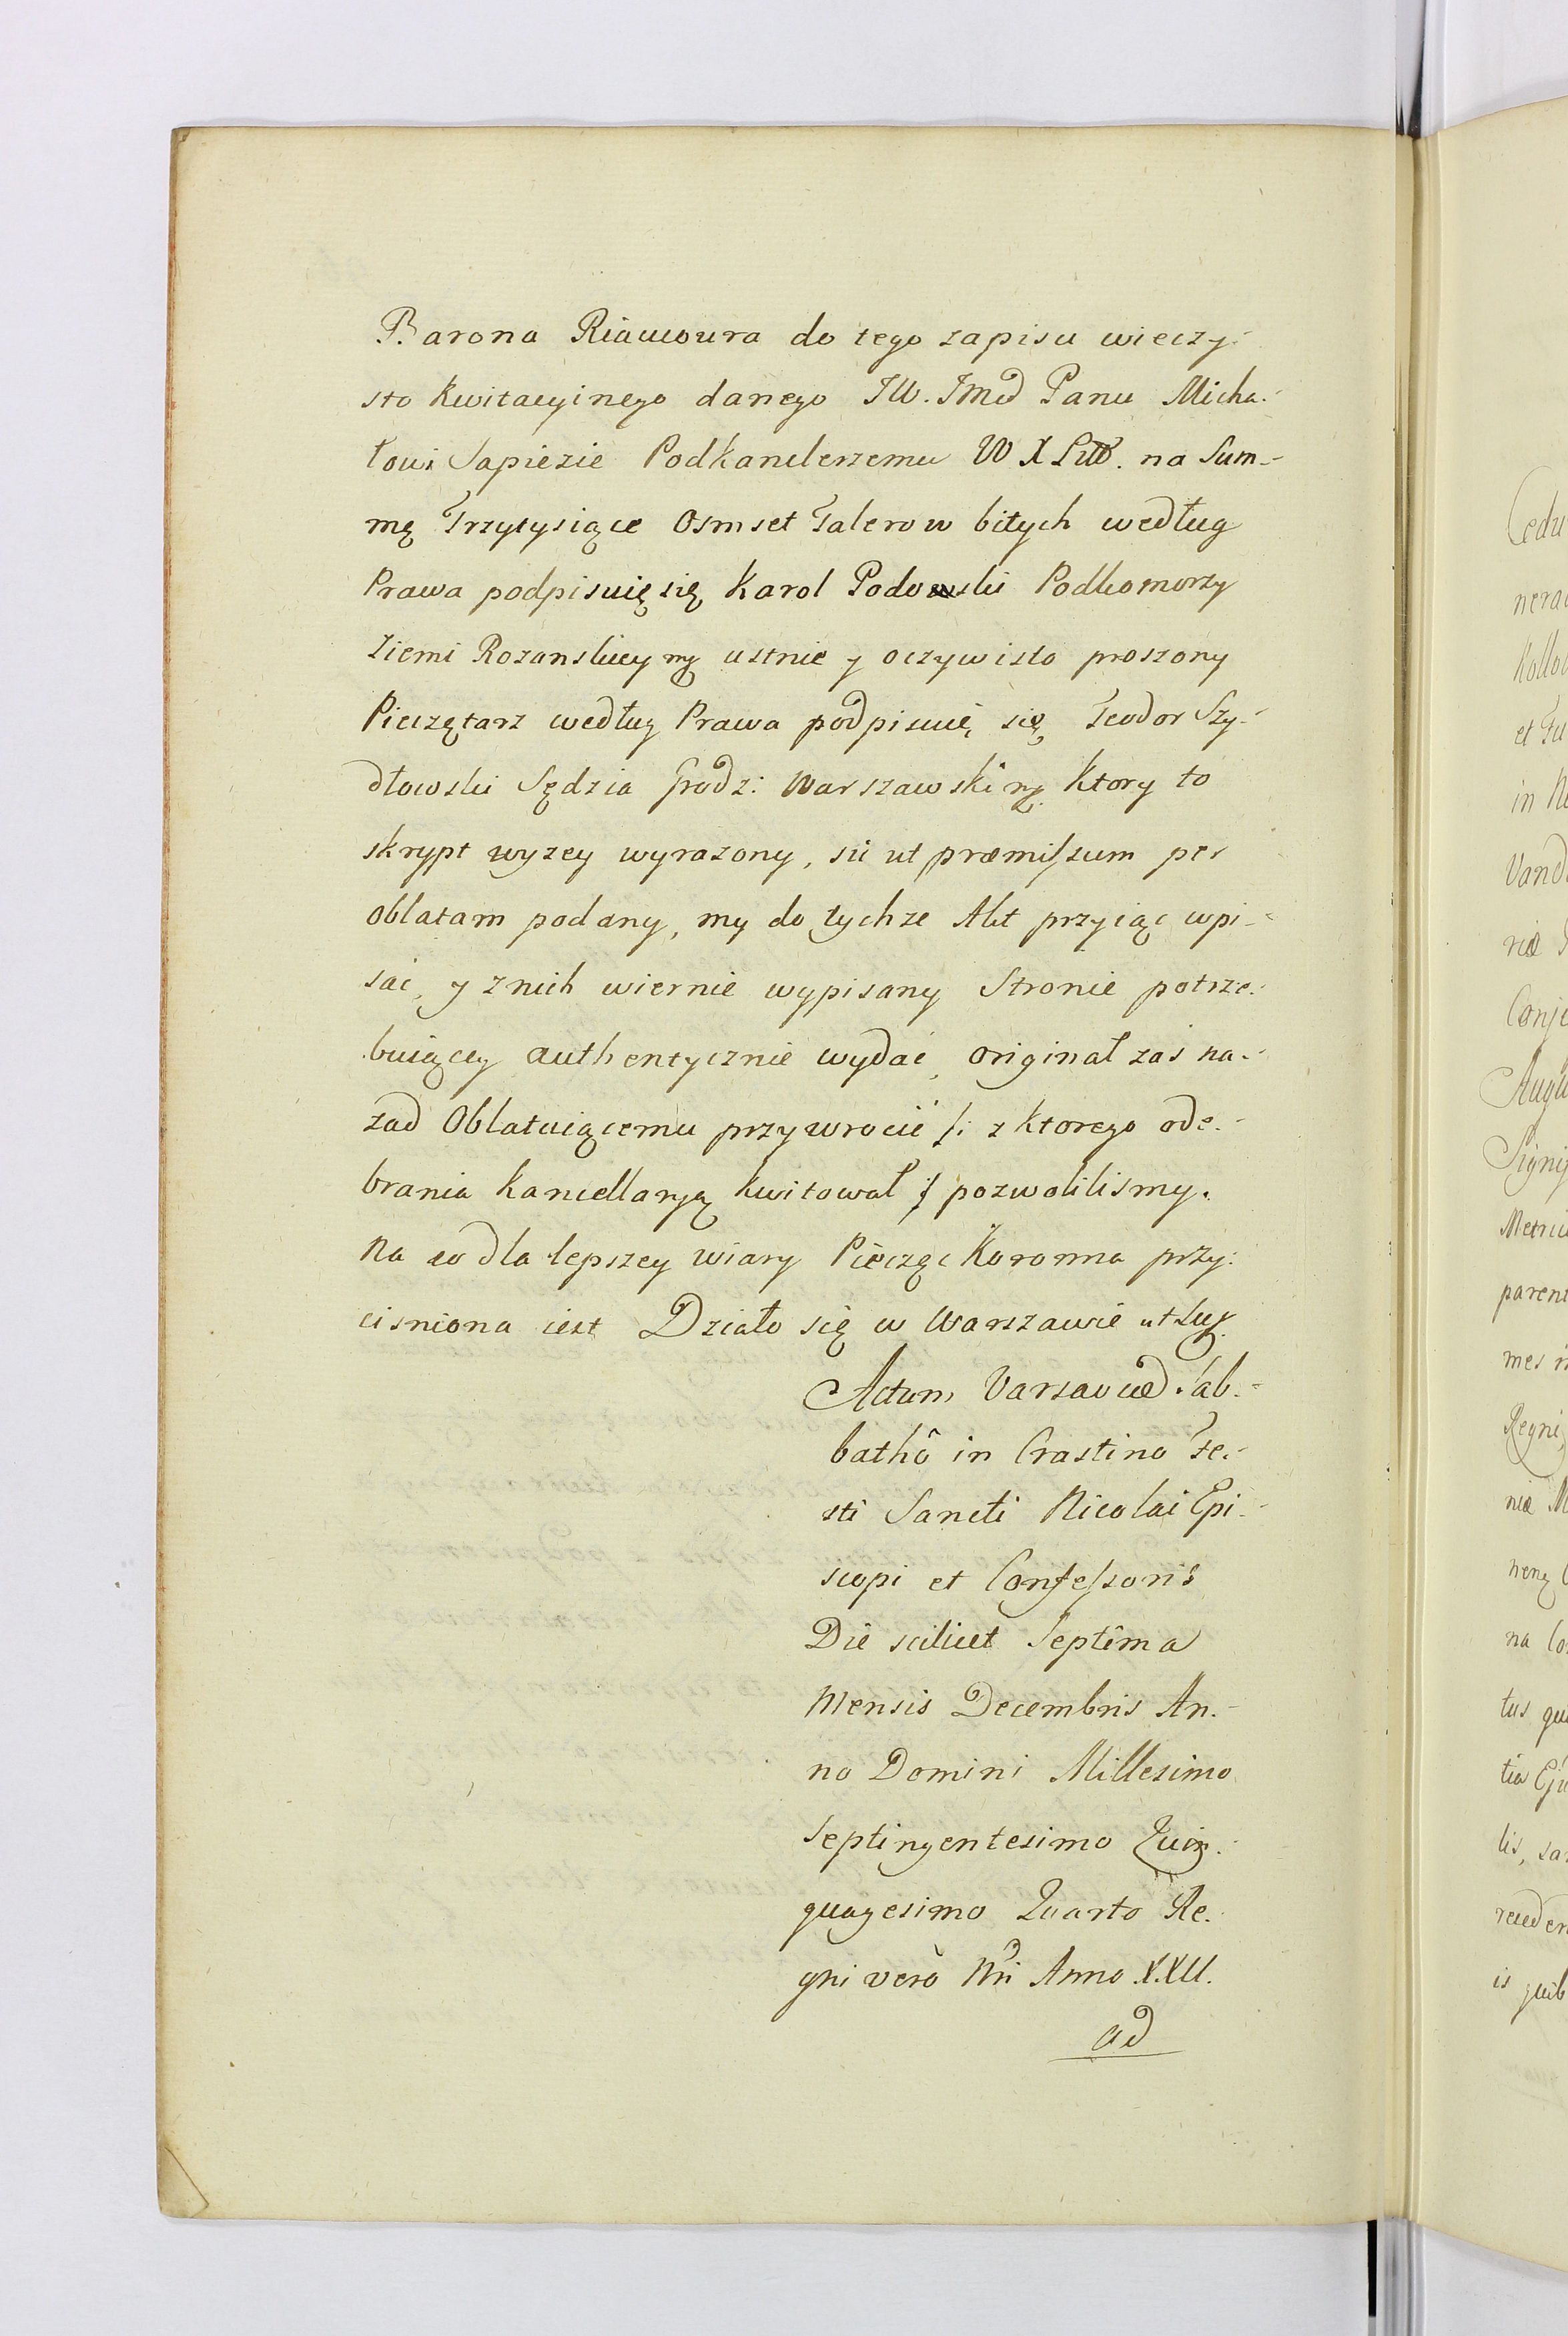 Barona Riaucoura do tego zapisu wieczy-
sto kwitacyinego danego JW. Jmd Panu Micha-
łowi Sapiezie Podkanclerzemu W X Litt. na Sum-
mę Trzytysiące Osmset Talerow bitych według
Prawa podpisuię się Karol Podowski Podkomorzy
Ziemi Rozanskiey mp ustnie y oczywisto proszony
Pieczętarz według Prawa podpisuię się Teodor Szy-
dłowski Sędzia Grodz: Warszawski mp. Ktory to
skrypt wyzey wyrazony, sic ut præmissum per
oblatam podany, my do tychze Akt przyiąc wpi-
sac, y znich wiernie wypisany Stronie potrze-
buiącey authentycznie wydac, originał zas na-
zad Oblatuiącemu przywrocic /: z ktorego ode-
brania kancellaryą kwitował :/ pozwolilismy.
Na co dla lepszey wiary Pieczęc Koronna przy-
cisniona iest Działo się w Warszawie ut sup.
Actum Varsaviæ Sab-
bathô in Crastino Fe-
sti Sancti Nicolai Epi-
scopi et Confessoris
Die scilicet Septima
Mensis Decembris An-
no Domini Millesimo
Septingentesimo Quin-
quagesimo Quarto Re-
gni verò Nri Anno XXII.
ad
Cedu
nerac
Kollo
et Fu
in Re
Vand
riæ
Conje
Augu
Signi
Metric
parent
mes
Regni
niæ M
neng
na Co
tus qu
tia Eju
lis, sa
is quib